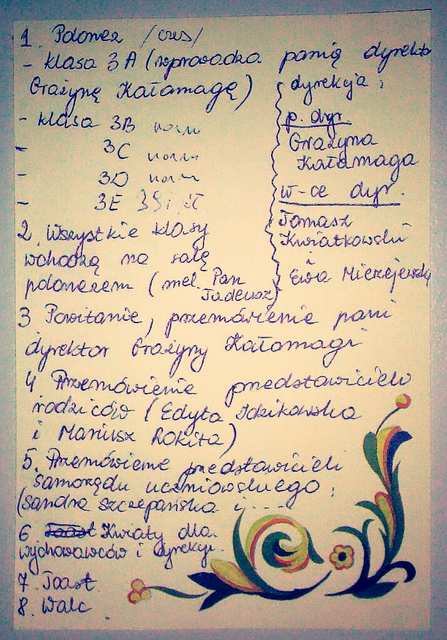 1. Polonez /czes/
- klasa 3A (wprowadza panią dyrektor
Grażynę Kałamagę)
- klasa 3B
- 3C
- 3D
- 3E
dyrekcja:
p. dyr.
Grażyna
Kałamaga
w-ce dyr.
Tomasz
Kwiatkowski
i
Ewa Mierzejewska
2. Wszystkie klasy
wchodzą na salę
polonezem (mel. Pan
Tadeusz)
3 Powitanie, przemówienie pani
dyrektor Grażyny Kałamagi
4 Przemówienie przedstawicieli
rodziców (Edyta
i Mariusz Rokita)
5. Przemówienie przedstawicieli
samorządu uczniowskiego:
(Sandra Szczepańska i....
6 Toast Kwiaty dla
wychowawców i dyrekcji.
7. Toast
8. Walc